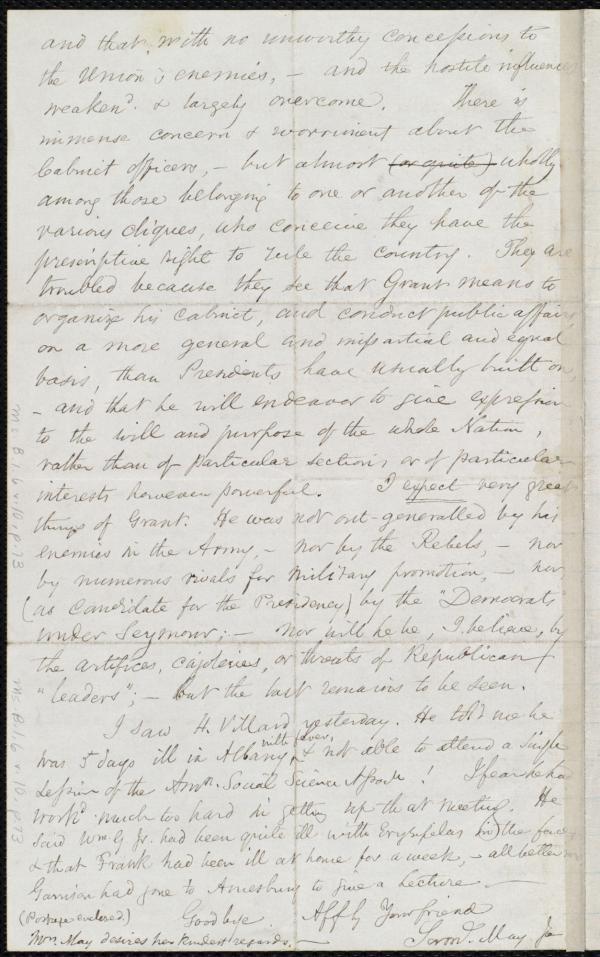 and that, with no unworthy concessions to
the Union's enemies, – and the hostile influences
weaken'd & largely overcome. There is
immense concern & worriment about the
Cabinet officers, – but almost (or quite) wholly
among those belonging to one or another of the
various cliques, who conceive they have the
prescriptive right to rule the country. They are
troubled because they see that Grant means to
organize his Cabinet, and conduct public affairs
on a more general and impartial and equal
basis, than Presidents have usually built on,
– and that he will endeavor to give expression
to the will and purpose of the whole Nation,
rather than of particular sections or of particular
interests however powerful. I expect very great
things of Grant. He was not out-generalled by his
enemies in the Army, – nor by the Rebels, – nor
by numerous rivals for military promotion, – nor
(as Candidate for the Presidency) by the "Democrats"
under Seymour; – nor will he be, I believe, by
the artifices, cajoleries, or threats of Republican
"leaders"; – but the last remains to be seen.
I saw H. Villard yesterday. He told me he
was 5 days ill in Albany, with fever, & not able to attend a single
session of the Amn. Social Science Assocn! I fear he has
work'd much too hard in getting up that meeting. He
said Wm G Jr. had been quite ill with Erysipelas in the face
& that Frank had been ill at home for a week, – all better now
Garrison had gone to Amesbury to give a lecture –
(Postage enclosed.) Goodbye Affly Your friend
Mrs. May desires her kindest regards. – Saml. May Jr
Ms. B.1.6 v.10, p.73
Ms. B.1.6 v.10, p.73